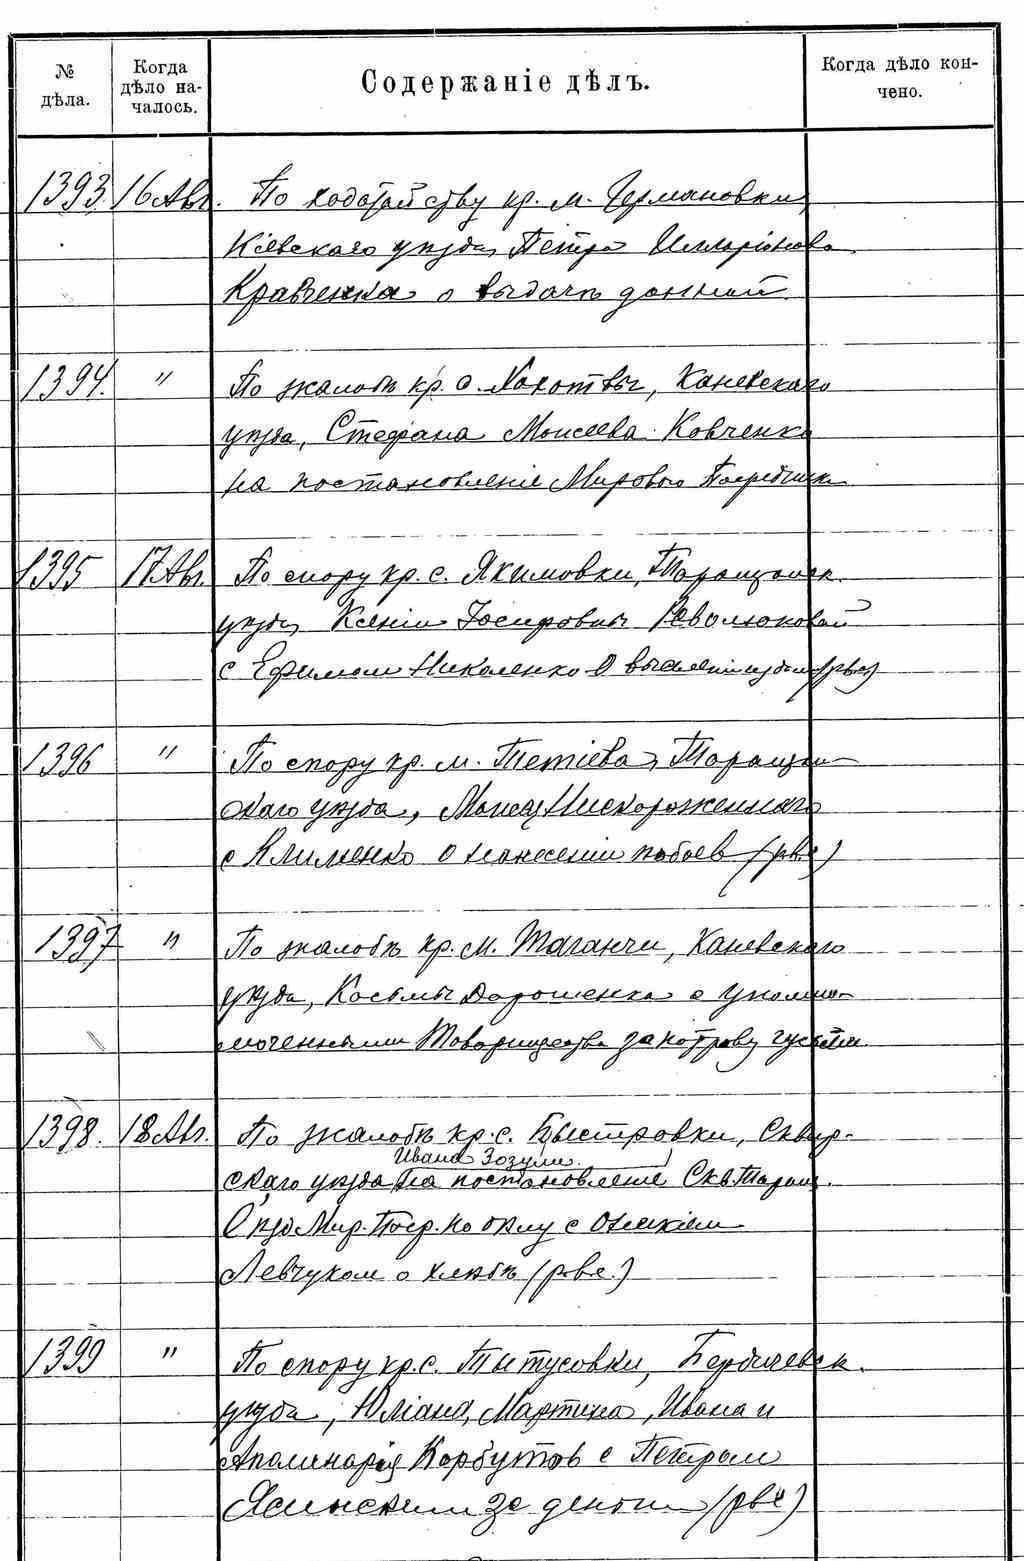 № дѣла.
Когда дѣло началось.
Содержаніе дѣлъ.
Когда дѣло кончено.
1393. 16 Авг. По ходатайству кр. м. Германовки,
Кіевскаго уѣзда, Петра Иларіонова
Кравченка о выдачѣ данной.
1394. " По жалобѣ кр. с. Хохотвы, Каневскаго
уѣзда, Стефана Моисеева Ковченко
на постановленіе Мирового Посредника
1395 17 Авг. По спору кр. с. Якимовки, Таращанск.
уѣзда, Ксеніи Іосифовны
с Ефимом Николенко о
1396 " По спору кр. м. Тетіева, Таращан-
скаго уѣзда,
с Клименко о нанесеніи побоев (рев.)
1397 " По жалобѣ кр. м. Таганчи, Каневскаго
уѣзда, Косьмы Дорошенка с уполно-
моченными Товарищества за потраву
1398. 18 Авг. По жалобѣ кр. с. Быстровки, Сквир-
Ивана Зозули
скаго уѣзда на постановленіе Скв. Таращ.
Мир. Поср. по дѣлу с
Левчуком о хлѣбѣ (рев.)
1399 " По спору кр. с. Тытусовки, Бердичевск.
уѣзда, Юліана, Мартина, Ивана и
Аполинарія Корбутов с Петром
Ясинским за деньги (рев.)